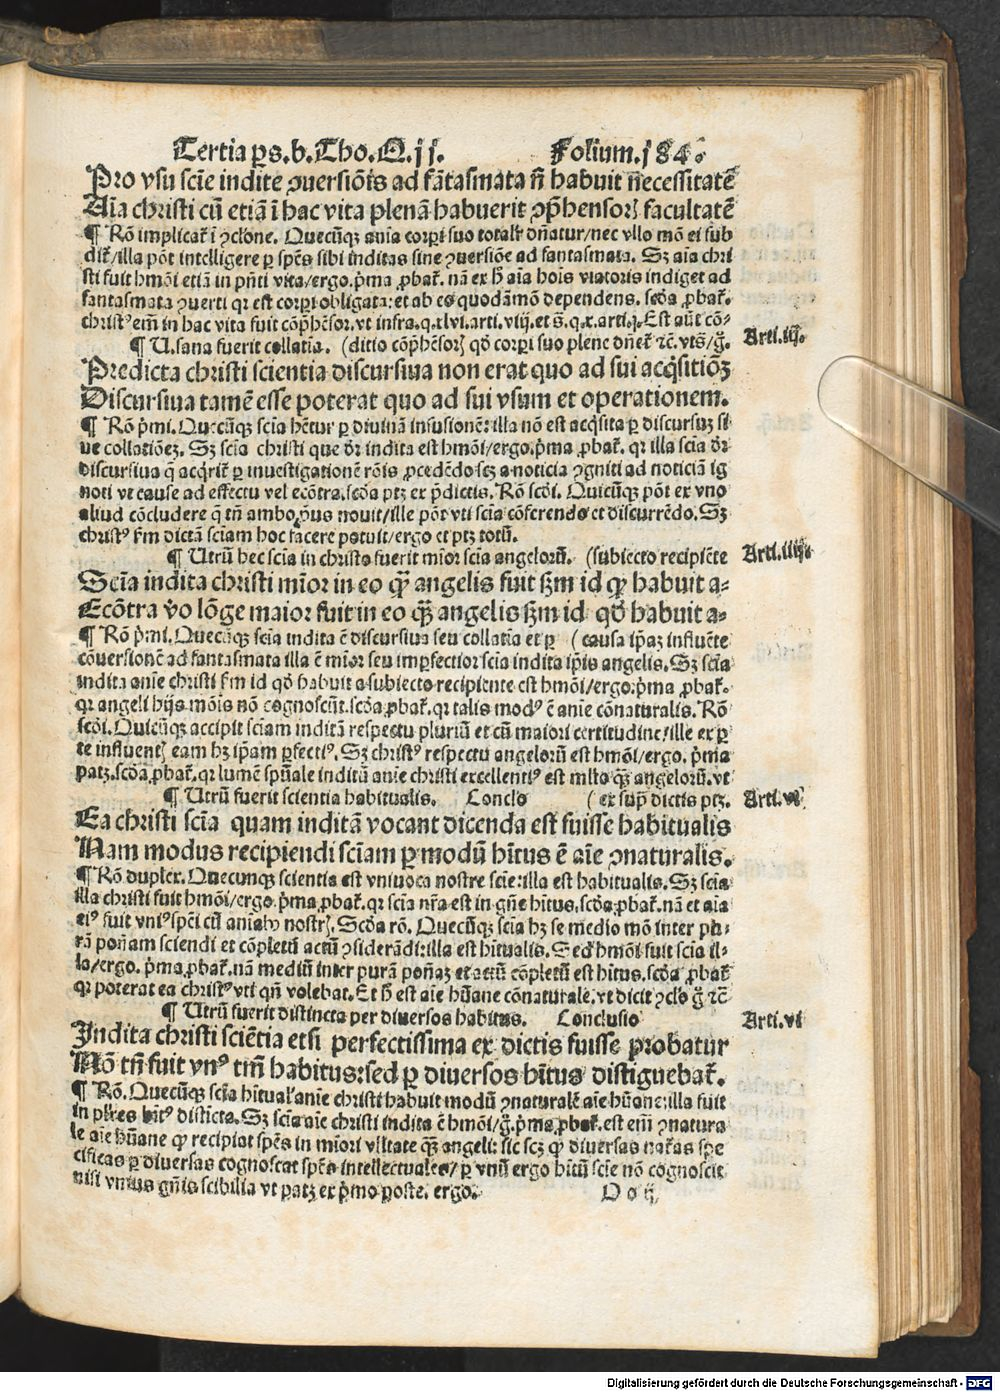 Tertia ꝑs.b.Tho.Q.jj. Folium.j84.
Pro vsu scīe indite ꝯuersiōis ad fātasmata n̄ habuit necessitatē
Aīa christi cū etiā ī hac vita plenā habuerit ꝯp̄hensoꝝ facultatē
¶ Rō implicat̄ ī ꝯclōne. Quecūqꝫ anīa corꝑi suo totalr̄ dn̄atur/nec vllo mō ei sub
dit̄/illa pōt intelligere ꝑ spēs sibi inditas sine ꝯuersiōe ad fantasmata. Sꝫ aīa chri
sti fuit hmōi etiā in pn̄ti vita/ergo.p̄ma ꝓbat̄. nā ex h̄ aīa hoīs viatoris indiget ad
fantasmata ꝯuerti qꝛ est corꝑi obligata: et ab eo quodāmō dependens. scd̄a ꝓbat̄.
christꝰ em̄ in hac vita fuit cōp̄hēsor. vt infra.q.xlvi.arti.viij. et s̄.q.x.arti.j. Est aūt cō-
¶ U.sana fuerit collatīa. (ditio cōp̄hēsoꝝ qd̄ corꝑi suo plene dn̄et̄ ⁊c̄. vts̄/g̊. Arti.iij.
Predicta christi scientia discursiua non erat quo ad sui acq̄sitiōꝫ
Discursiua tamē esse poterat quo ad sui vsum et operationem.
¶ Rō p̄mi. Quecūqꝫ scīa hētur ꝑ diuinā infusionē: illa nō est acq̄sita ꝑ discursuꝫ si
ue collatiōeꝫ. Sꝫ scīa christi que dr̄ indita est hmōi/ergo.p̄ma ꝓbat̄. qꝛ illa scīa dr̄
discursiua q̄ acq̄rit̄ ꝑ inuestigationē rōis ꝓcedēdo scꝫ a noticia ꝯgniti ad noticiā ig
noti vt cause ad effectū vel ecōtra.scd̄a ptꝫ ex p̄dictis. Rō scd̄i. Quicūqꝫ pōt ex vno
aliud cōcludere q̄ tn̄ ambo pͥus nouit/ille pōt vti scīa cōferendo et discurrēdo. Sꝫ
christꝰ ẜm dictā sciam hoc facere potuit/ergo et ptꝫ totū.
¶ Utrū hec scīa in christo fuerit mīor scīa angelorū. (subiecto recipiēte Arti.iiij.
Scīa indita christi mīor in eo qꝙ̄ angelis fuit ẜm id qꝙ habuit a-
Ecōtra v̊o lōge maior fuit in eo qꝙ̄ angelis ẜm id qd̄ habuit a-
¶ Rō p̄mi. Quecūqꝫ scīa indita ē discursiua seu collatīa et ꝑ ( causa ip̄aꝫ influēte
cōuersionē ad fantasmata illa ē mīor seu imꝑfectior scīa indita ip̄is angelis. Sꝫ scīa
indita anīe christi ẜm id qd̄ habuit a subiecto recipiente est hmōi/ergo.p̄ma ꝓbat̄.
qꝛ angeli hijs mōis nō cognoscūt. scd̄a ꝓbat̄. qꝛ talis modꝰ ē anīe cōnaturalis. Rō
scd̄i. Quicūqꝫ accipit sciam inditā respectu pluriū et cū maiori certitudine/ille ex ꝑ
te influentꝭ eam hꝫ ip̄am ꝑfectiꝰ. Sꝫ christꝰ respectu angelorū est hmōi/ergo. p̄ma
patꝫ. scd̄a ꝓbat̄. qꝛ lumē spūale inditū anīe christi excellentiꝰ est mlto qꝙ̄ angelorū.vt
¶ Utrū fuerit scientia habitualis. Conclō (ex sup̄ dictis ptꝫ. Arti.v.
Ea christi scīa quam inditā vocant dicenda est fuisse habitualis
Nam modus recipiendi scīam ꝑ modū hītus ē aīe ꝯnaturalis.
¶ Rō duplex. Quecunqꝫ scientia est vniuoca nostre scīe: illa est habitualis. Sꝫ scīa
illa christi fuit hmōi/ergo.p̄ma ꝓbat̄. qꝛ scīa nr̄a est in gn̄e hītus.scd̄a ꝓbat̄. nā et aīa
eiꝰ fuit vniꝰ spēi cū aniabꝰ nostrꝭ. Scd̄a rō. Quecūqꝫ scīa hꝫ se medio mō inter pu-
rā potn̄am sciendi et cōpletū actū ꝯsiderādi: illa est hītualis. Sed hmōi fuit scīa il-
la/ergo. p̄ma ꝓbat̄. nā mediū inter purā potn̄aꝫ et actū cōpletū est hītus. scd̄a ꝓbat̄
qꝛ poterat ea christꝰ vti qn̄ volebat. Et h̄ est aīe hūane cōnaturale. vt dicit ꝯclō g̊ ⁊c̄
¶ Utrū fuerit distincta per diuersos habitus. Conclusio Arti.vi
Indita christi sciētia etsi perfectissima ex dictis fuisse probatur
Nō tn̄ fuit vnꝰ tm̄ habitus: sed ꝑ diuersos hītus distiguebat̄.
¶ Rō. Quecūqꝫ scīa hītual' anīe christi habuit modū ꝯnaturalē aīe hūane: illa fuit
in plr̄es hītꝰ distīcta. Sꝫ scīa aīe christi indita ē hmōi/g̊.p̄ma ꝓbat̄. est em̄ ꝯnatura
le aīe hūane qꝙ recipiat spēs in mīori vlītate qꝙ̄ angeli: sic scꝫ qꝙ diuersas nat̄as spe
cificas ꝑ diuersas cognoscat spēs intellectuales/ ꝑ vnū ergo hītū scīe nō cognoscit
nisi vnius gn̄is scibilia vt patꝫ ex p̄mo poste. ergo.
O o ij
Digitalisierung gefördert durch die Deutsche Forschungsgemeinschaft - DFG